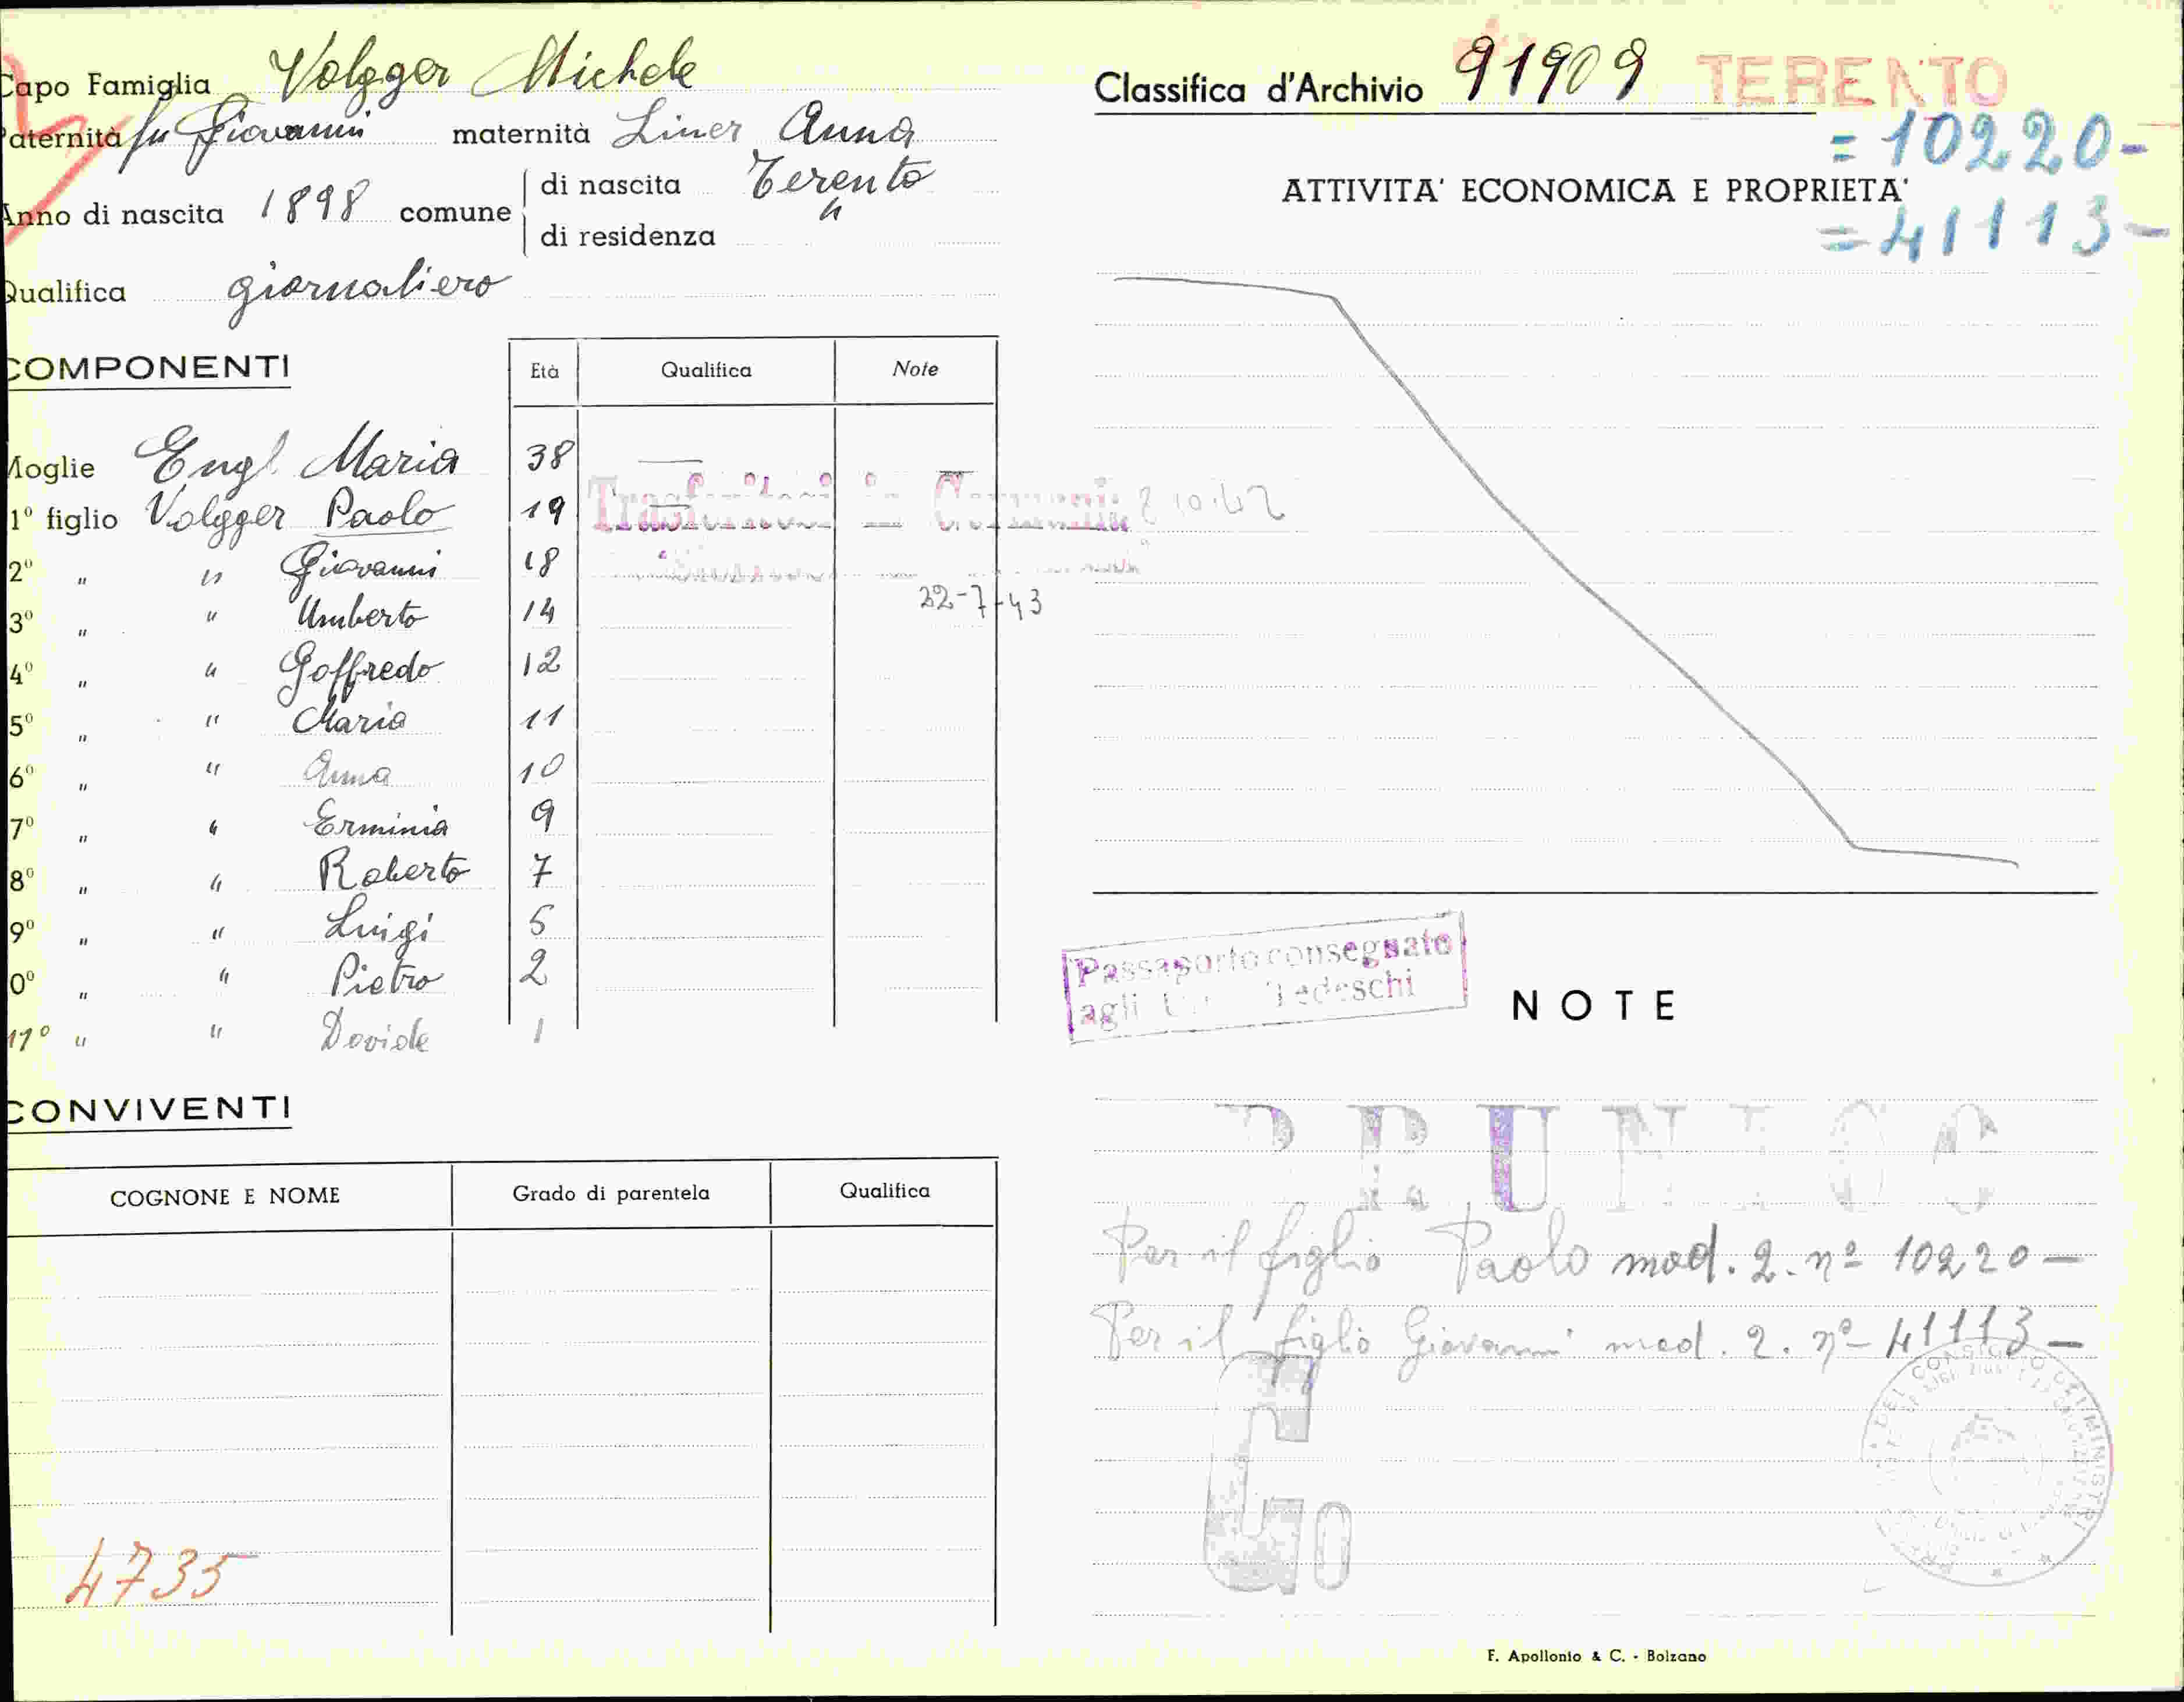 Capo Famiglia Volgger Michele
Paternità fu Giovanni maternità Liner Anna
Anno di nascita 1898 comune di nascita Terento
di residenza "
Qualifica giornaliero
COMPONENTI Età Qualifica Note
Moglie Engl Maria 38 —
1º figlio Volgger Paolo 19 —
Trasferitosi in Germania 8 10.42
2º " " Giovanni 18
22-7-43
3º " " Umberto 14
4º " " Goffredo 12
5º " " Maria 11
6º " " Anna 10
7º " " Erminia 9
8º " " Roberto 7
9º " " Luigi 5
0º " " Pietro 2
11º " " Davide 1
CONVIVENTI
COGNONE E NOME Grado di parentela Qualifica
4735
Classifica d'Archivio 91909 TERENTO
= 10220-
ATTIVITA' ECONOMICA E PROPRIETA'
= 41113-
Passaporto consegnato
agli Tedeschi
NOTE
BRUNICO
Per il figlio Paolo mod. 2. nº 10220 —
Per il figlio Giovanni mod. 2. nº 41113 —
GO
DEL CONSIGLIO DEI MINISTRI
F. Apollonio & C. - Bolzano